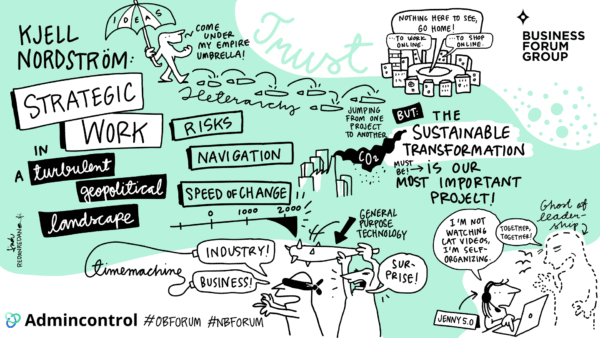 KJELL
NORDSTRÖM:
STRATEGIC
WORK
IN
A turbulent
geopolitical
landscape
IDEAS
COME
UNDER
MY EMPIRE
UMBRELLA!
Trust
Heterarchy
JUMPING
FROM ONE
PROJECT
TO ANOTHER
NOTHING HERE TO SEE,
GO HOME!
...TO WORK
ONLINE.
...TO SHOP
ONLINE.
BUSINESS
FORUM
GROUP
RISKS
NAVIGATION
SPEED OF CHANGE
0 1000 2000
CO2
BUT: THE
SUSTAINABLE
TRANSFORMATION
MUST
BE! → IS OUR
MOST IMPORTANT
PROJECT!
GENERAL
PURPOSE
TECHNOLOGY
timemachine
INDUSTRY!
BUSINESS!
SUR-
PRISE!
I'M NOT
WATCHING
CAT VIDEOS,
I'M SELF-
ORGANIZING.
TOGETHER,
TOGETHER!
Ghost of
leader-
ship
JENNY 5.0
Admincontrol #OBFORUM #NBFORUM